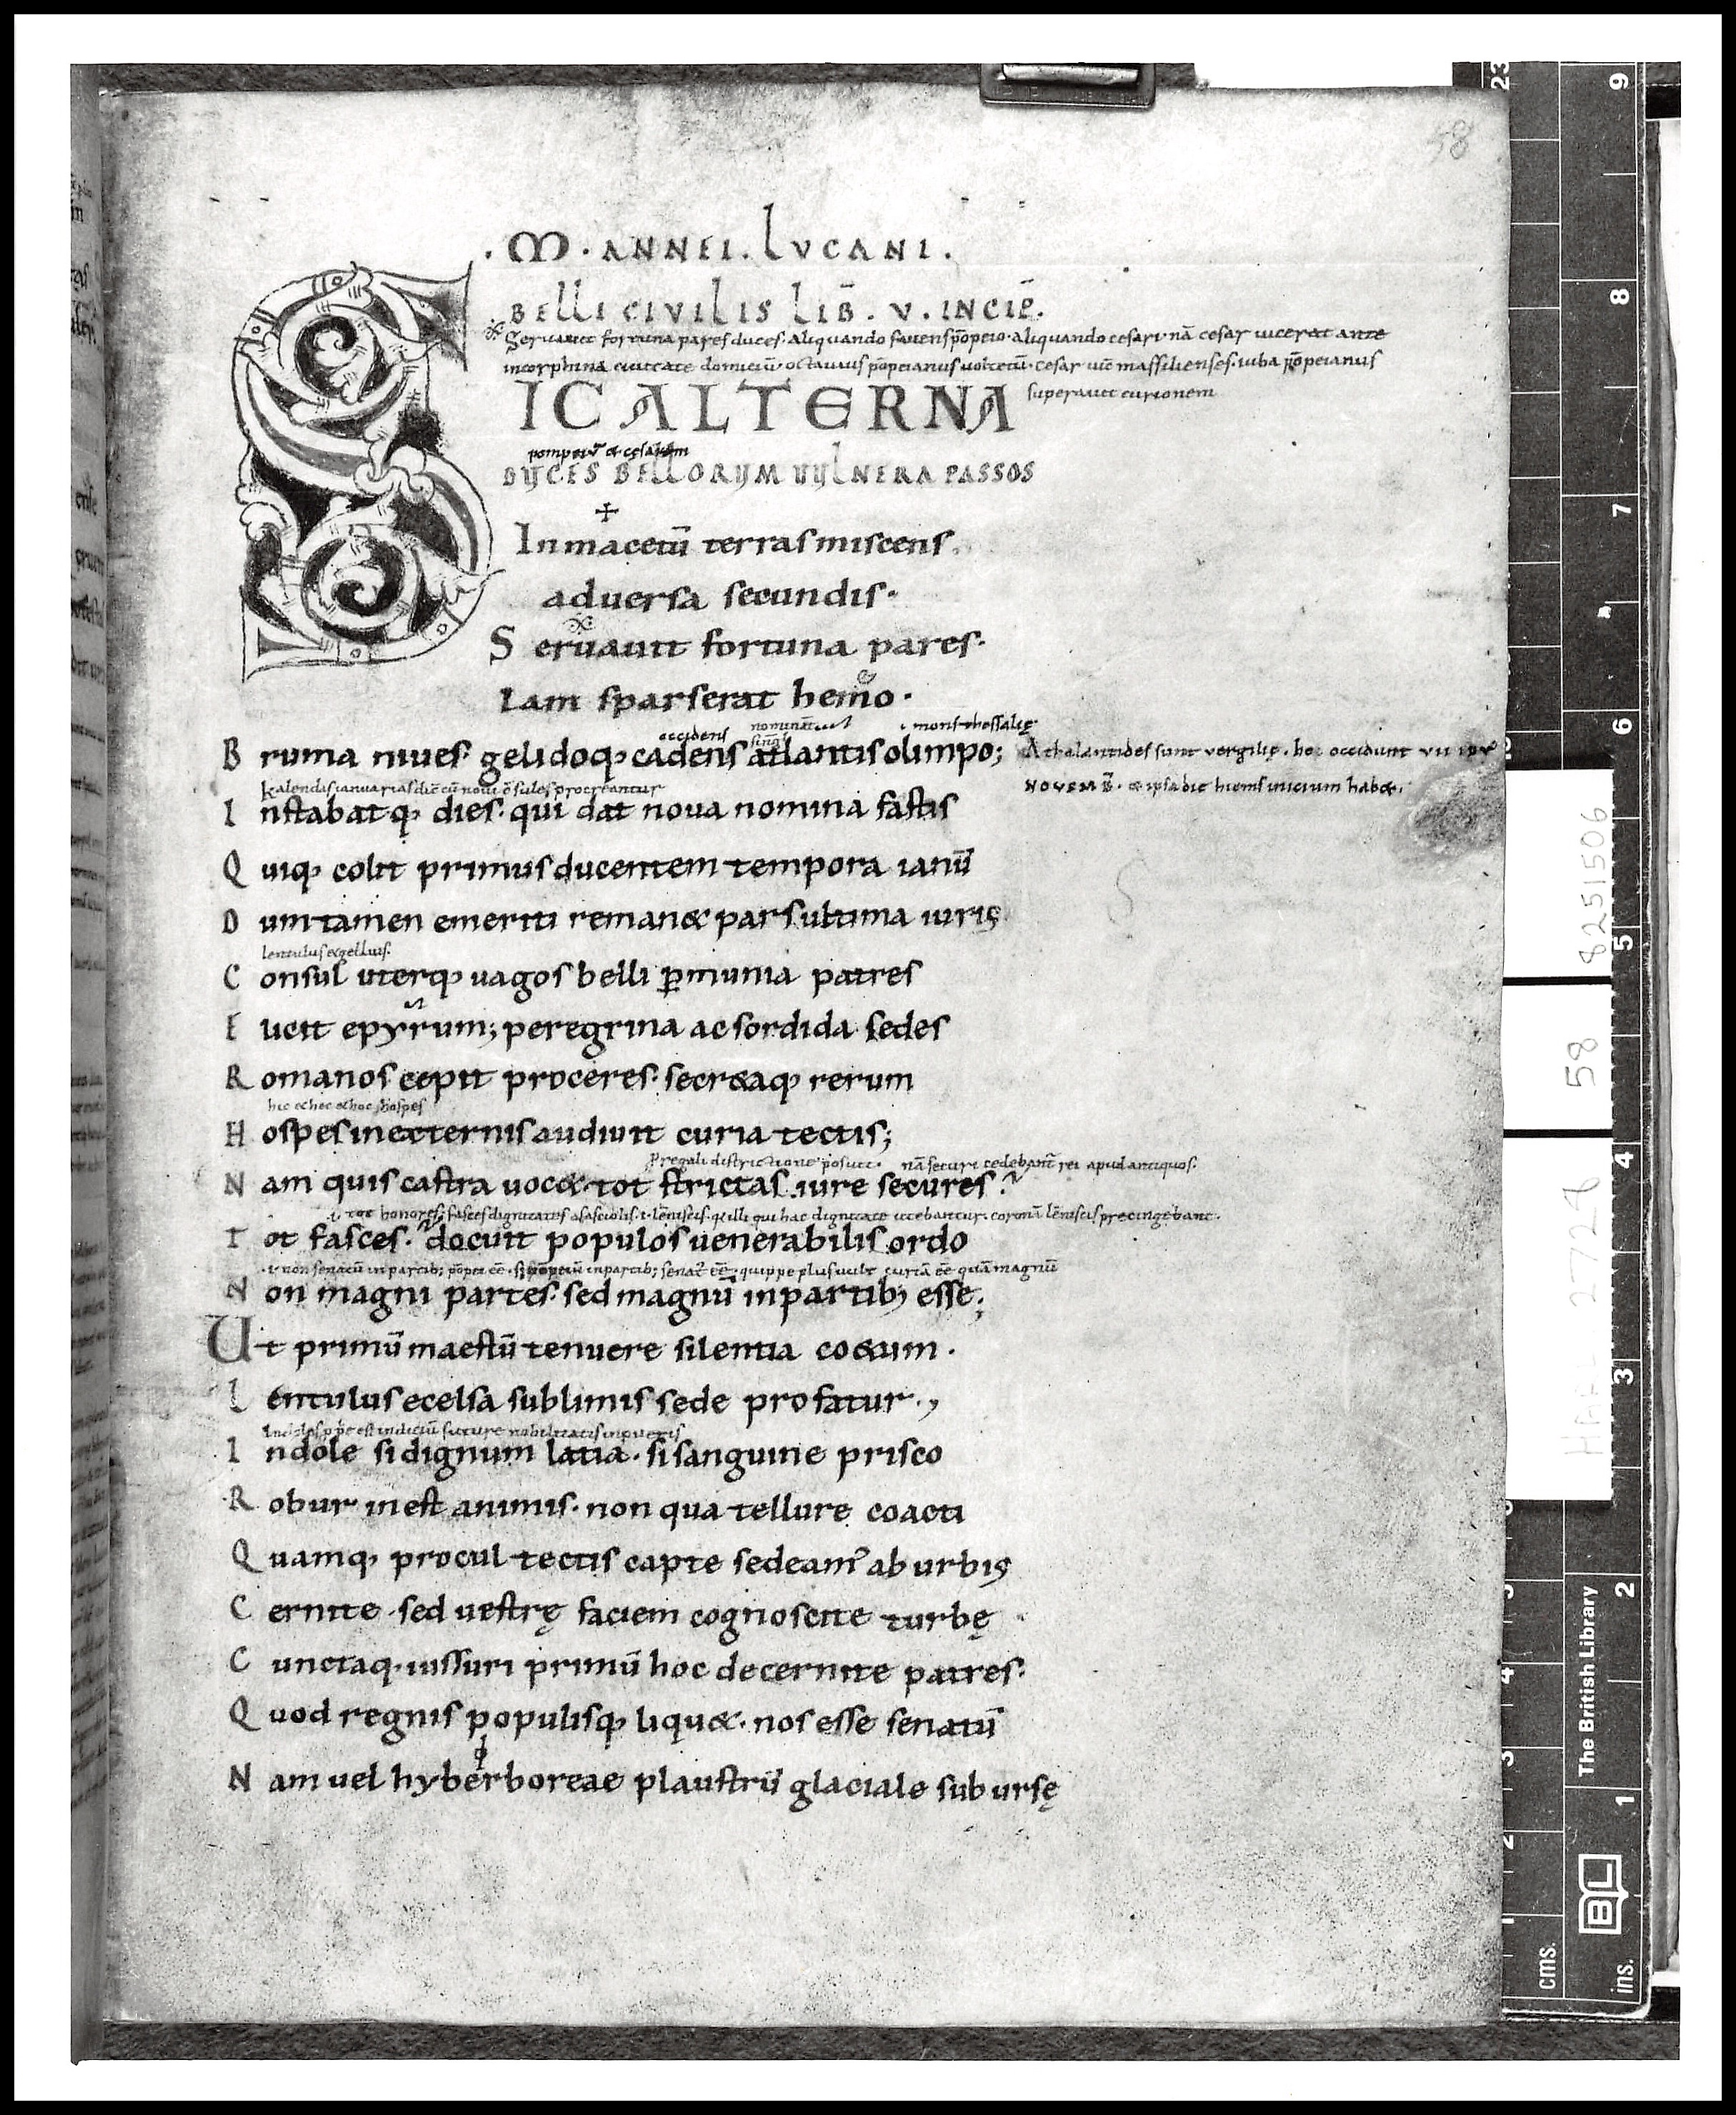 58
.M.ANNEI.LVCANI.
BELLI CIVILIS LIB̄.V.INCIP̄.
Seruauit fortuna pares duces. Aliquando fauens pōpeio. aliquando cesari. nā cesar uicerat ante
incorphina ciuitate domiciū. octauius pōpeianus uolteiū. cesar massilienses. iuba pōpeianus
superauit curionem
SIC ALTERNA
pompeiū & cesarem
DUCES BELLORUM UULNERA PASSOS
In macetū terras miscens
aduersa secundis.
Seruauit fortuna pares.
Iam sparserat hemo.
accidens mons thessalię
Bruma niues. gelidoq; cadens atlantis olimpo;
Athalantides sunt vergilię. hec occidunt VII
NOVEMB̄. & ipsa die hiems inicium hab&.
kalendas ianuarias diē cū noui cōsules procreantur
Instabat q; dies. qui dat noua nomina fastis
Quiq; colit primus ducentem tempora ianū
Dum tamen emeriti reman& pars ultima iuris
lentulus & gellius.
Consul uterq; uagos belli ꝑ munia patres
Eucit epyrum; peregrina ac sordida sedes
Romanos cepit proceres. secr&aq; rerum
hic & hec & hoc hospes
Hospes in externis audiuit curia tectis;
P regali districtione posuit. nā securi cedebant̄ rei apud antiquos.
Nam quis castra uoc& tot strictas iure secures?
tot honores. fasces dignitates a fasciolis. i. lēniscis. q illi qui hac dignitate utebantur. coronā lēniscis precingebant.
Tot fasces. docuit populos uenerabilis ordo
.i. non senatū in partib; pōpei ēē. in partib; senat̄ ēē. quippe plus uult curiā ēē quā magnū
Non magni partes. sed magnū in partib; esse;
Ut primū maestū tenuere silentia co&um.
Lentulus ecelsa sublimis sede profatur.,
Indoles est indiciū future nobilitatis in pueris
Indole si dignum latia. si sanguine prisco
Robur inest animis. non qua tellure coacti
Quamq; procul tectis capte sedeam̄ ab urbis
Cernite. sed uestrę faciem cognoscite turbę
Cunctaq. iussuri primū hoc decernite patres.
Quod regnis populisq; liqu&. nos esse senatū
Nam uel hyberboreae plaustrū glaciale sub ursę
HARL 2728
58
8251506
The British Library
BL
cms.
ins.
1
2
3
4
5
6
7
8
9